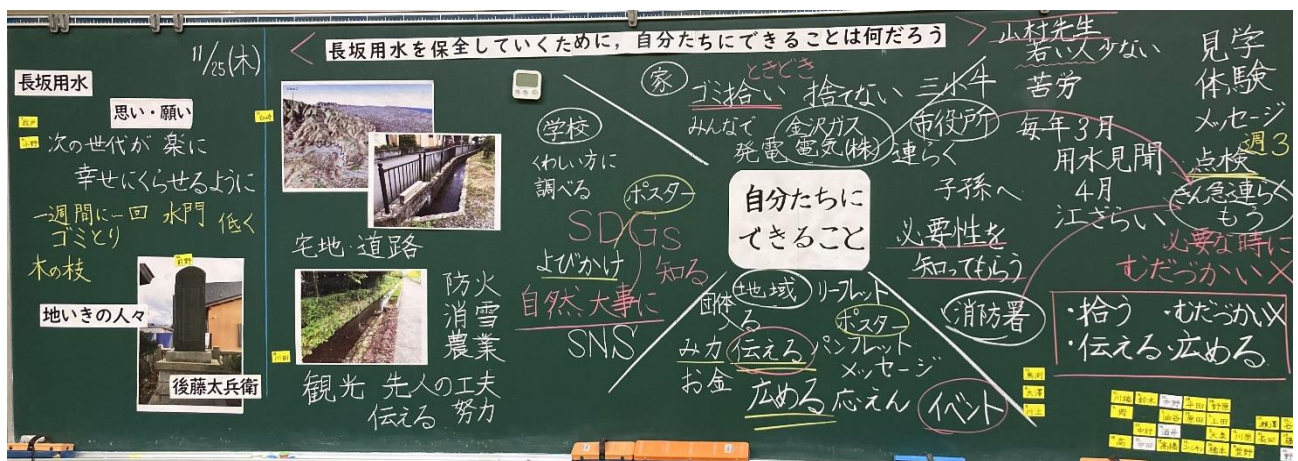 11/25(木)
長坂用水を保全していくために，自分たちにできることは何だろう
長坂用水
思い・願い
次の世代が 楽に
幸せにくらせるように
一週間に一回 水門 低く
ゴミとり
木の枝
地いきの人々
後藤太兵衛
宅地 道路
防火
消雪
農業
観光 先人の工夫
伝える 努力
学校
くわしい方に
調べる
ポスター
SDGs
よびかけ
知る
自然、大事に
SNS
家
ときどき
ゴミ拾い 捨てない
みんなで
発電
金沢ガス
電気(株)
連らく
三水牛
市役所
自分たちに
できること
子孫へ
必要性を
知ってもらう
消防署
地域
団体
入る
リーフレット
ポスター
み力
お金
伝える
パンフレット
メッセージ
広める
応えん
イベント
山村先生
若い人少ない
苦労
毎年3月
用水見聞
4月
江ざらい
見学
体験
メッセージ
週3
点検
きん急連らく
もう
必要な時に
むだづかい×
・拾う ・むだづかい×
・伝える・広める